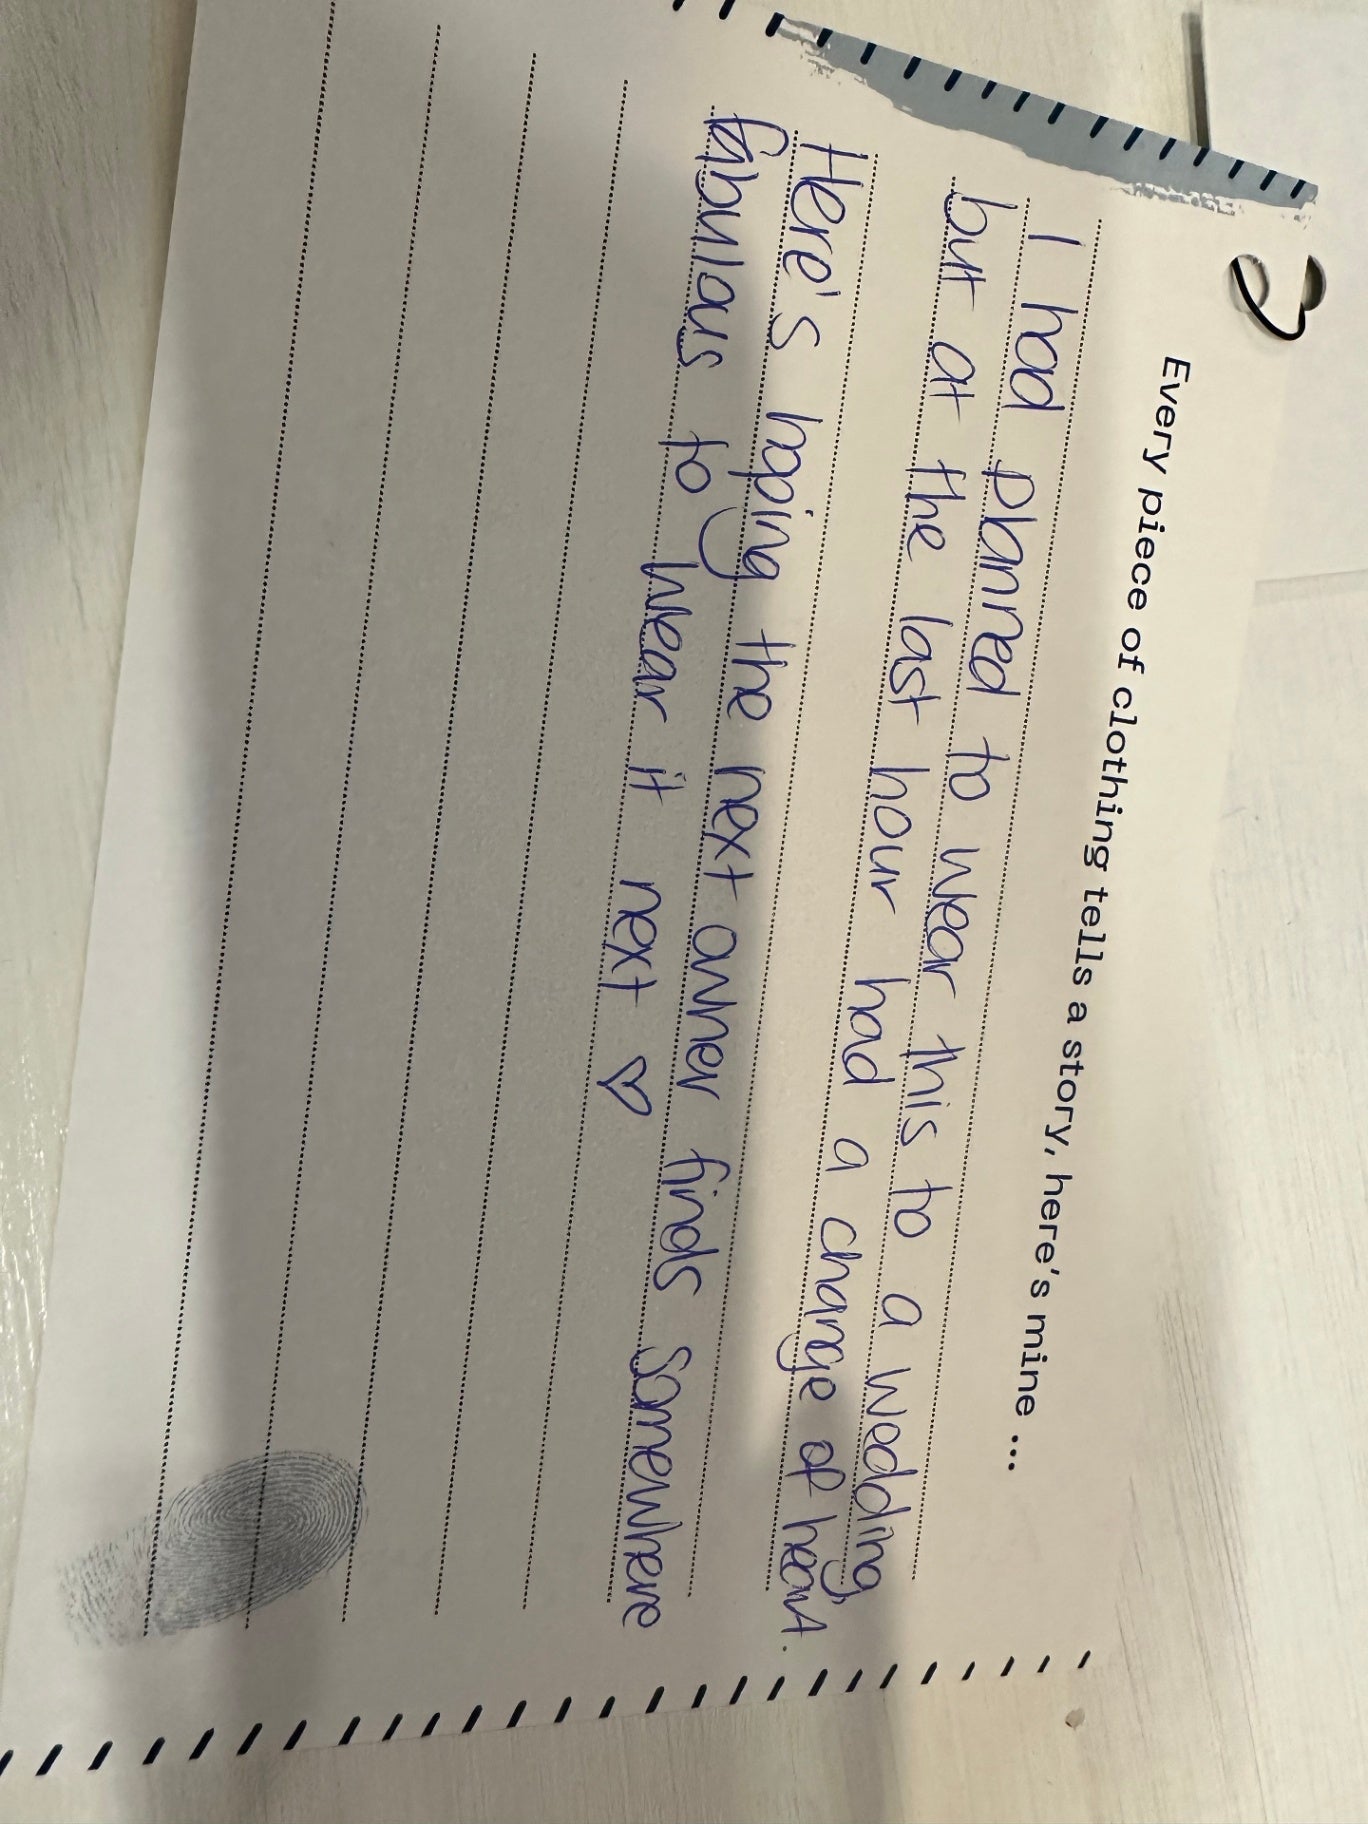 Every piece of clothing tells a story, here's mine ...
I had planned to wear this to a wedding,
but at the last hour had a change of heart.
Here's hoping the next owner finds somewhere
fabulous to wear it next ♡